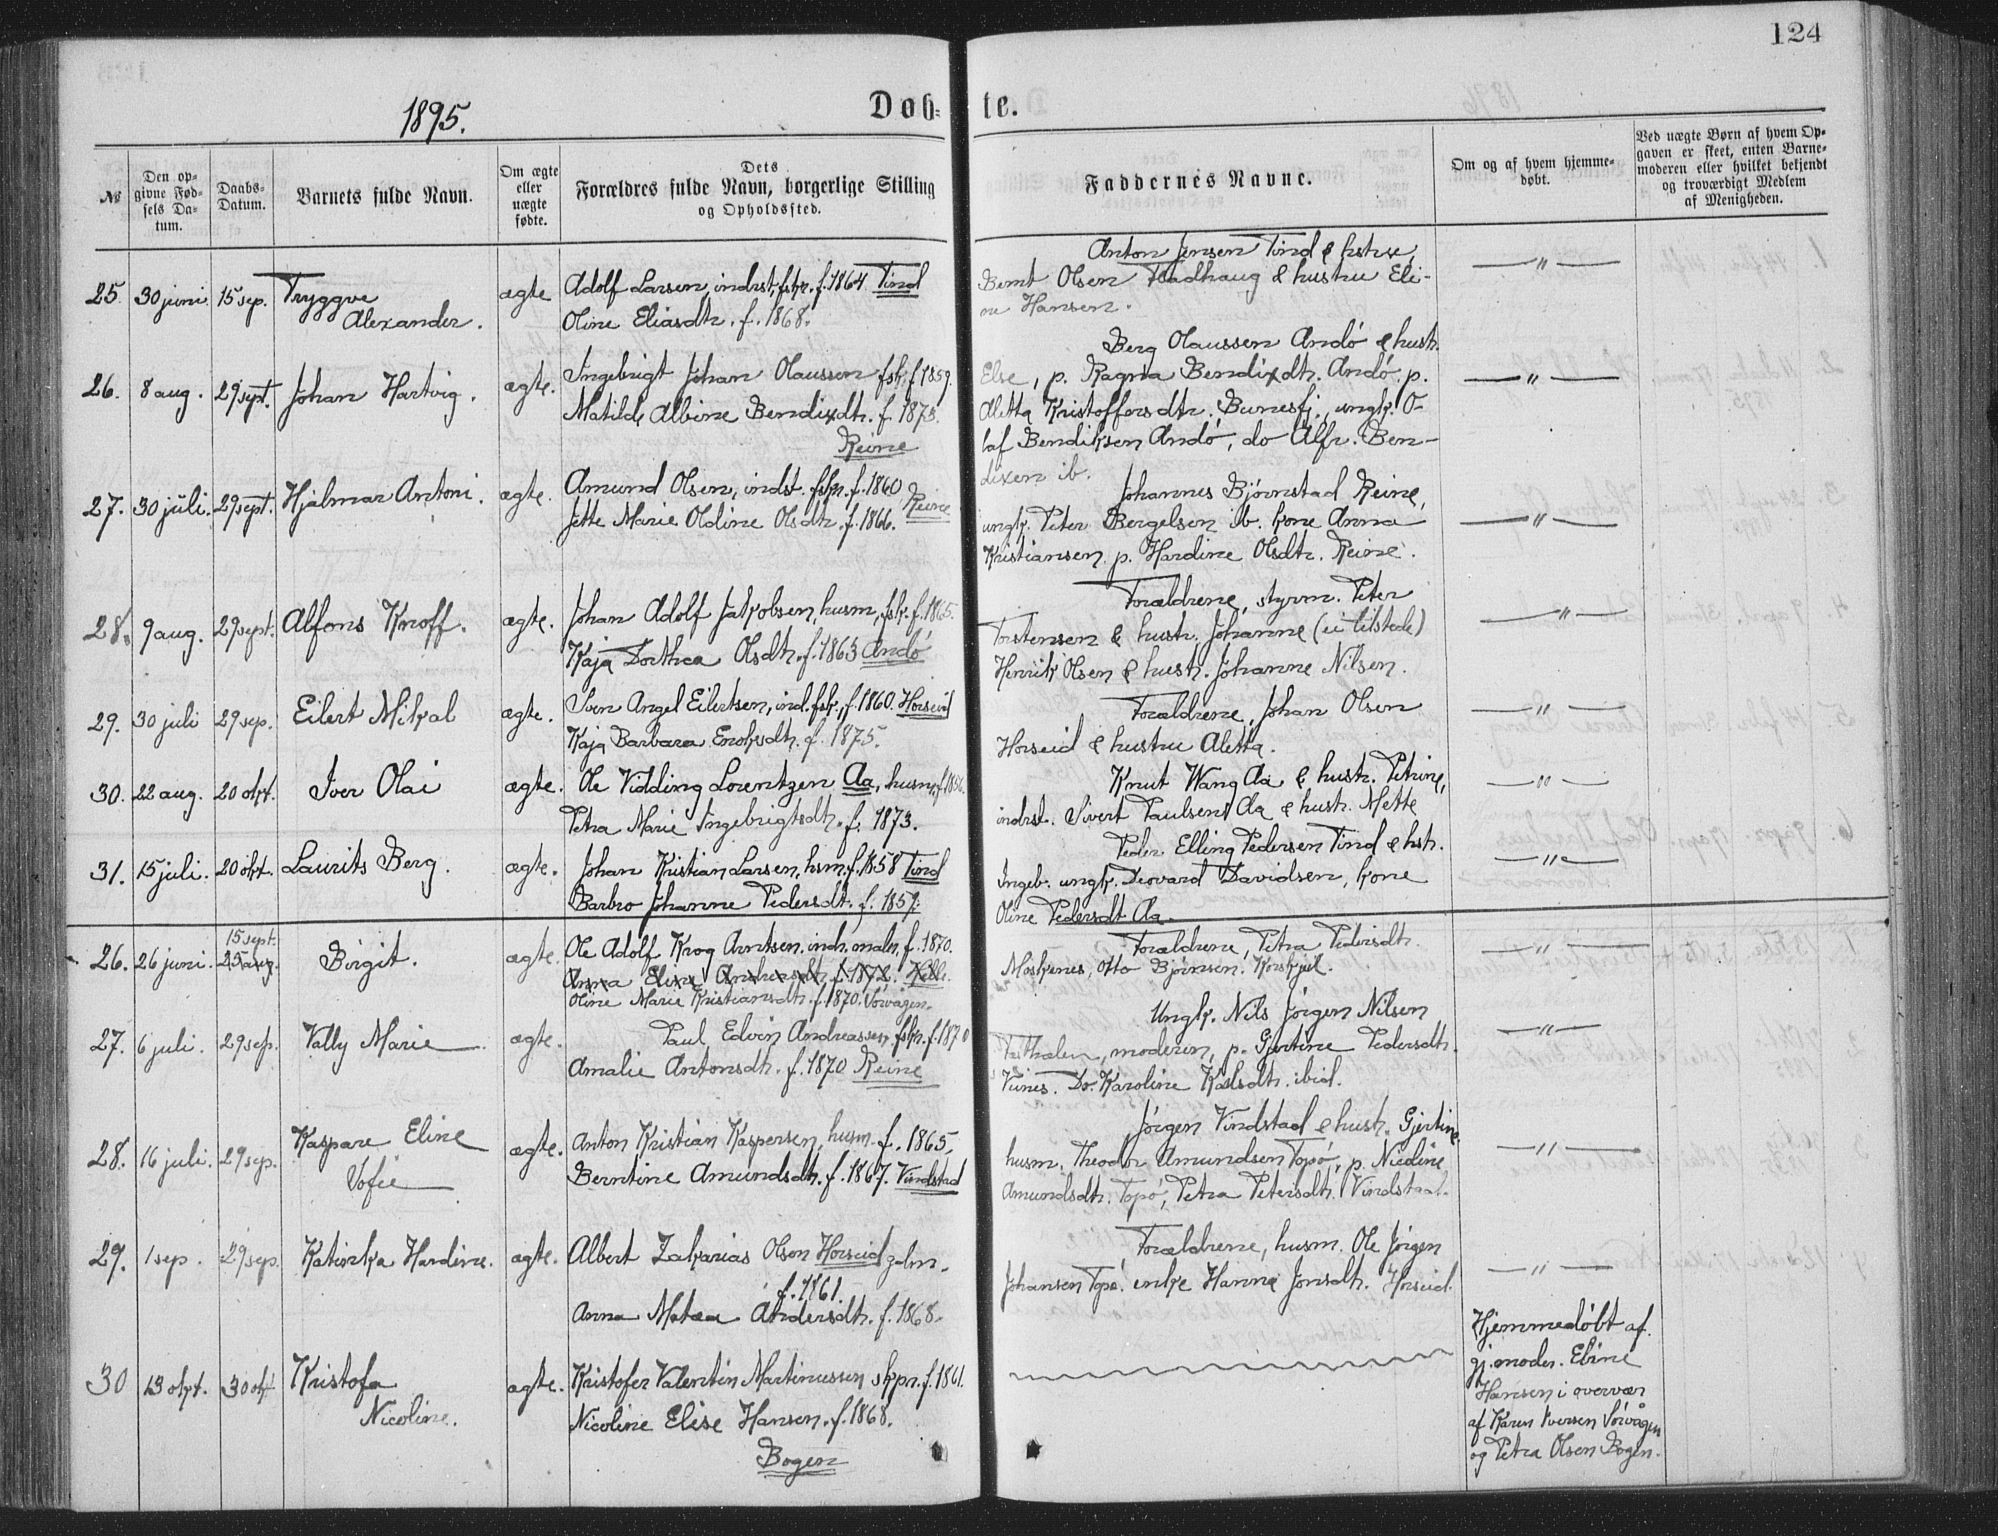 124
1895.
Døb-te.
№
Den op-
givne Fød-
sels Da-
tum.
Daabs-
Datum.
Barnets fulde Navn.
Om ægte
eller
uægte
fødte.
Dets
Forældres fulde Navn, borgerlige Stilling
og Opholdssted.
Faddernes Navne.
Om og af hvem hjemme-
døbt.
Ved uægte Børn af hvem Op-
gaven er skeet, enten Barne-
moderen eller hvilket bekjendt
og troværdigt Medlem
af Menigheden.
25. 30 juni 15 sep. Tryggve
Alexander.
ægte
Adolf Larsen, indrst, fskr. f. 1864 Tind
Oline Eliasdtr. f. 1868.
Anton Jensen Tind & hstru,
Bernt Olsen & hustru Eli-
ne Hansen.
— " —
26. 8 aug. 29 sept. Johan Hartvig.
ægte.
Ingebrigt Johan Olaussen fsk. f. 1859.
Matilde Albine Bendixdtr. f. 1873.
Reine
Berg Olaussen Andö & hustr.
Else, p. Ragna Bendixdtr. Andö, p.
Aletta Kristoffersdtr. Bunesfj., ungk. O-
laf Bendiksen Andö, do Alfr. Ben-
dixen ib.
— " —
27. 30 juli. 29 sept. Hjalmar Antoni.
ægte.
Amund Olsen, indst. fskr. f. 1860
Jette Marie Oldine Olsdtr. f. 1866. Reine
Johannes Björnstad Reine,
ungk. Peter Bergelsen ib. kone Anna
Kristiansen, p. Hardine Olsdtr. Reine.
— " —
28. 9 aug. 29 sept. Alfons Knoff.
ægte.
Johan Adolf Jakobsen, husm, fsk. f. 1865.
Kaja Dorthea Olsdtr. f. 1863 Andö
Forældrene, styrm. Peter
Torstensen & hustr. Johanne (ei tilstede)
Henrik Olsen & hustr. Johanne Nilsen.
— " —
29. 30 juli 29 sep. Eilert Mikal
ægte.
Iver Angel Eilertsen, ind. fsk., f. 1860. Horseid
Kaja Barbara Enoksdtr. f. 1875.
Forældrene, Johan Olsen
Horseid & hustru Aletta.
— " —
30. 22 aug. 20 okt. Iver Olai
ægte.
Ole Vidding Lorentzen Aa, husm, f. 1856.
Petra Marie Ingebrigtsdtr. f. 1873.
Knut Wang Aa & hustr. Petrine,
indrst. Sivert Paulsen Aa & hustr. Mette
— " —
31. 15 juli. 20 okt. Laurits Berg.
ægte.
Johan Kristian Larsen, hsm. f. 1858 Tind
Barbro Johanne Pedersdt. f. 1857.
Peder Elling Pedersen Tind & hstr.
Ingeb. ungk. Deovard Davidsen, kone
Oline Pedersdt Aa.
— " —
26. 26 juni. 15 sept.
25 aug. Birgit.
ægte.
Ole Adolf Krog Arntsen. indr. maler, f. 1870.
Anna Elene Andreasdt. f. 1872. Kelle.
Oline Marie Kristiansdtr. f. 1870. Sörvågen.
Forældrene, Petra Pedersdtr.
Moskenes, Otto Björnsen.
— " —
27. 6 juli. 29 sep. Vally Marie
ægte.
Paul Edvin Andreassen fskr. f. 1870
Amalie Antonsdtr. f. 1870 Reine
Ungk. Nils Jörgen Nilsen
moderen, p. Gjertine Pedersdtr.
Vines. Do. Karoline Karlsdtr. ibid.
— " —
28. 16 juli. 29 sep. Kaspare Eline
Sofie
ægte.
Anton Kristian Kaspersen, husm. f. 1865,
Berntine Amundsdtr. f. 1867. Vindstad
Jörgen Vindstad & hustr. Gjertine
husm. Theodor Amundsen Topö, p. Nicoline
Amundsdtr. Topö, Petra Petersdtr. Vindstad.
— " —
29. 1 sep. 29 sep. Katinka Hardine.
ægte.
Albert Zakarias Olson Horseid
f. 1861.
Anna Matea Andersdtr. f. 1868.
Forældrene, husm. Ole Jörgen
Johansen Topö. enke Hanna Jonsdtr. Horseid.
— " —
30 13 okt. 30 okt. Kristofa
Nicoline.
ægte.
Kristofer Valentin Martinussen skpr. f. 1861.
Nicoline Elise Hansen. f. 1868.
Bogen
Hjemmedöbt af
gj. moder. Eline
Hansen i overvær
af Karen Iversen Sörvågen
og Petra Olsen Bogen.